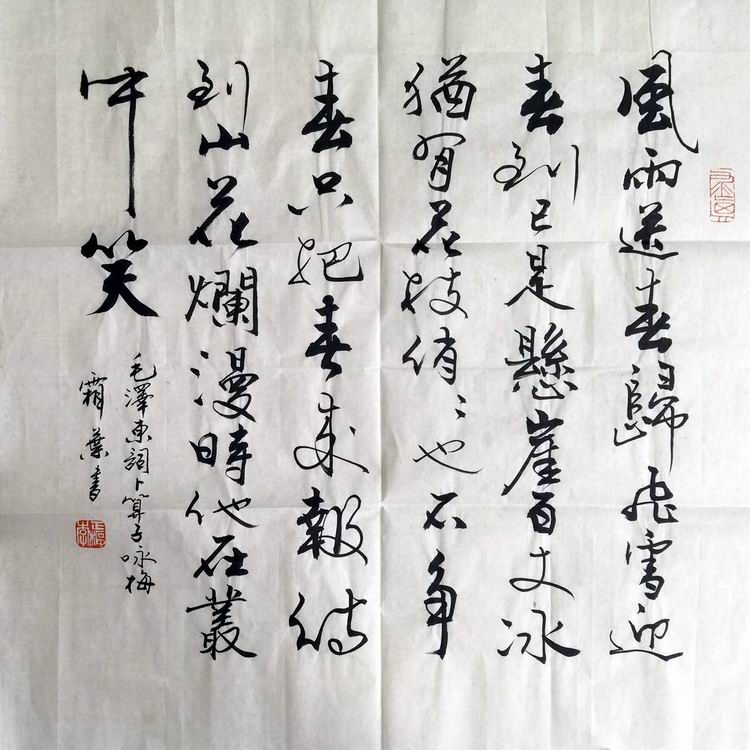 風雨送春歸飛雪迎
春到已是懸崖百丈冰
猶有花枝俏〻也不争
春只把春来報待
到山花爛漫時她在叢
中笑
毛澤東詞卜算子咏梅
霜葉書